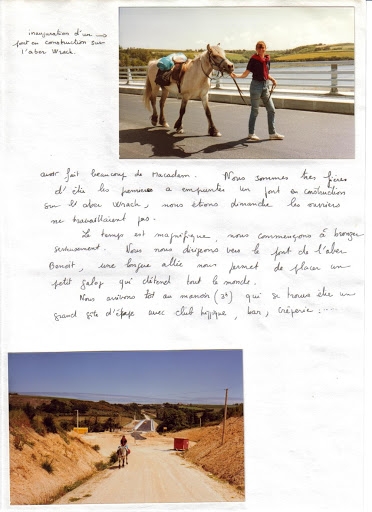 inauguration d'un
pont en construction sur
l'aber Wrach.
avoir fait beaucoup de Macadam. Nous sommes très fières
d'être les premières a emprunter un pont en construction
sur l'aber Wrach, nous étions dimanche les ouvriers
ne travaillaient pas.
Le temps est magnifique, nous commençons à bronzer
serieusement. Nous nous dirigeons vers le pont de l'aber
Benoit, une longue allée nous permet de placer un
petit galop qui détend tout le monde.
Nous arrivons tot au manoir (3h) qui se trouve être un
grand gîte d'étape avec club hippique, bar, crêperie .....